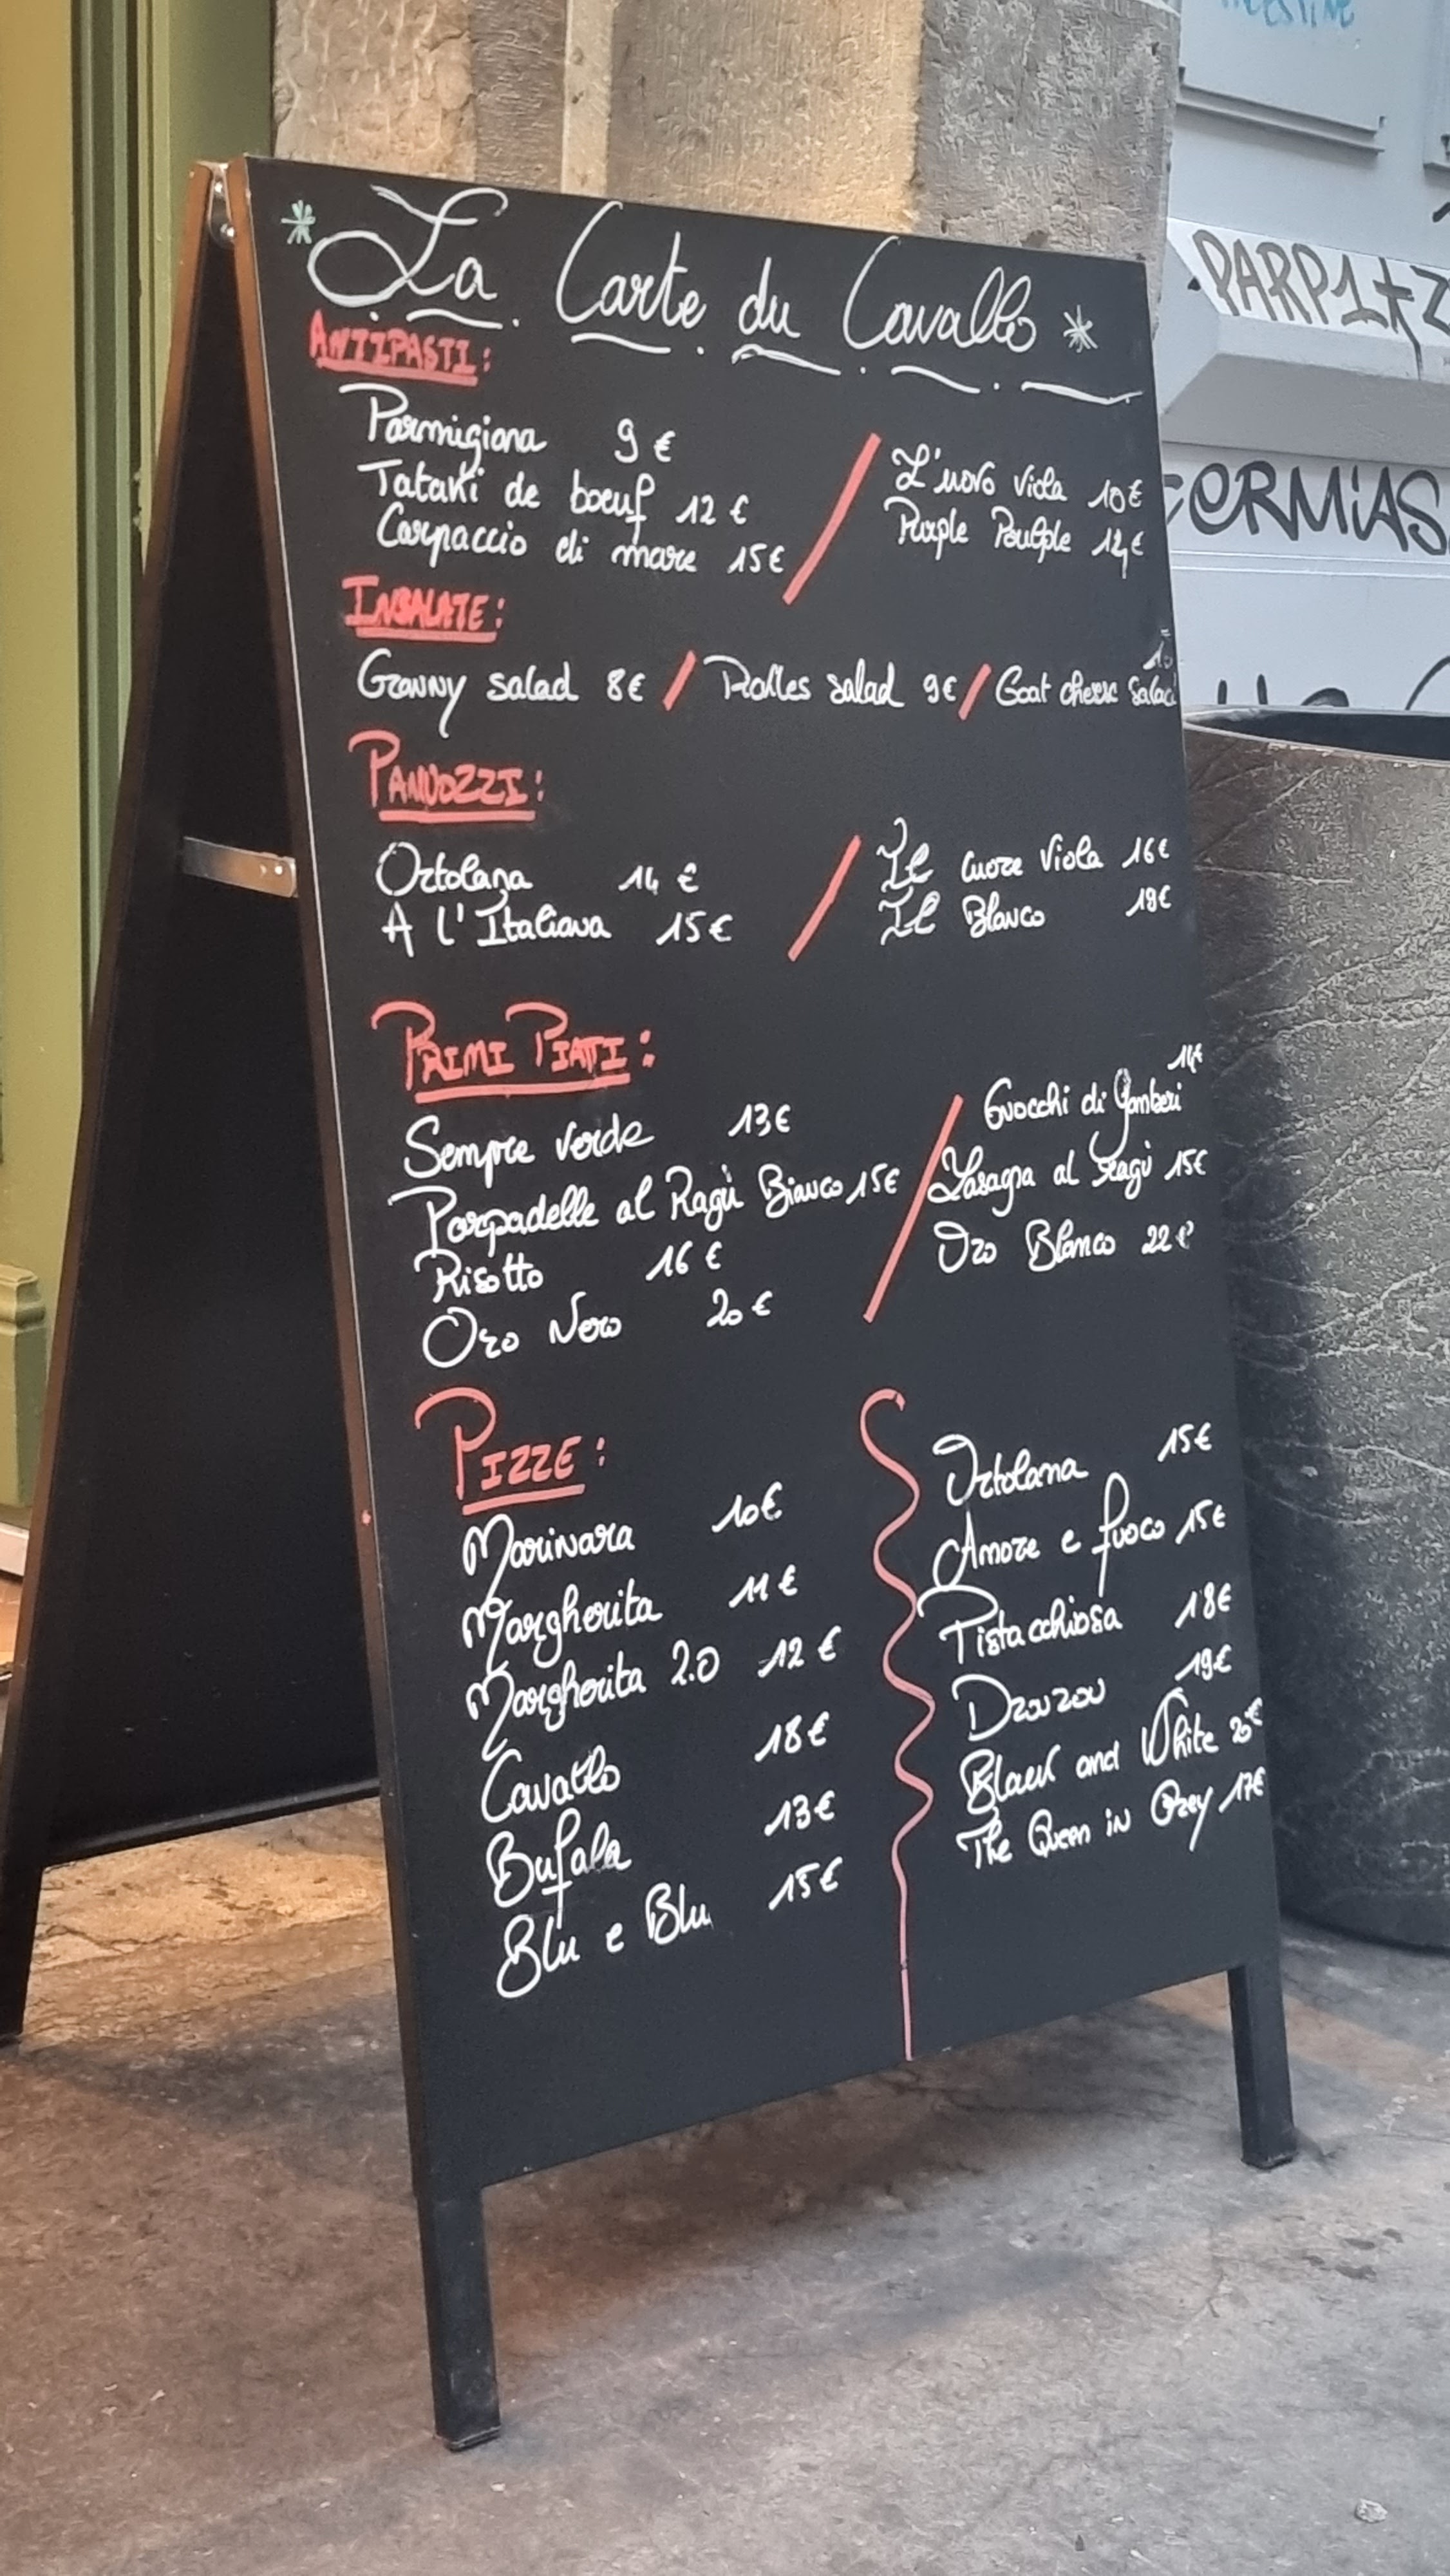 * La Carte du Cavallo *
ANTIPASTI :
Parmigiana 9 €
Tataki de boeuf 12 €
Carpaccio di mare 15 €
L'uovo viola 10 €
Purple Poulple 14 €
INSALATE :
Granny salad 8 € / Rolles salad 9 € / Goat cheese Salad
PANUOZZI :
Ortolana 14 €
A l'Italiana 15 €
Il cuore Viola 16 €
Il Blanco 19 €
PRIMI PIATTI :
Sempre verde 13 €
Parpadelle al Ragù Bianco 15 €
Risotto 16 €
Oro Nero 20 €
Gnocchi di Gamberi 14 €
Lasagna al Ragù 15 €
Oro Blanco 22 €
PIZZE :
Marinara 10 €
Margherita 11 €
Margherita 2.0 12 €
Cavallo 18 €
Bufala 13 €
Blu e Blu 15 €
Ortolana 15 €
Amore e fuoco 15 €
Pistacchiosa 18 €
Drouzou 19 €
Black and White 20 €
The Queen in Grey 17 €